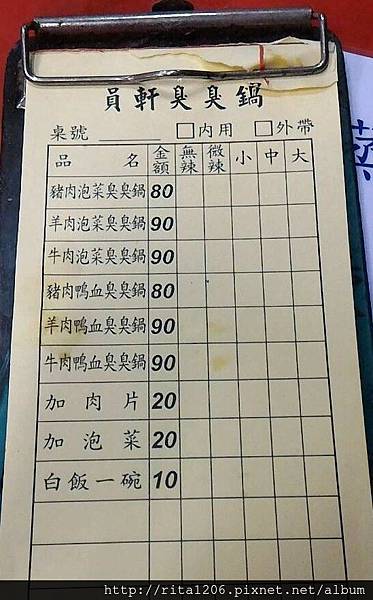 員軒臭臭鍋
桌號 ______ □內用 □外帶
品 名 金額 無辣 微辣 小 中 大
豬肉泡菜臭臭鍋 80
羊肉泡菜臭臭鍋 90
牛肉泡菜臭臭鍋 90
豬肉鴨血臭臭鍋 80
羊肉鴨血臭臭鍋 90
牛肉鴨血臭臭鍋 90
加肉片 20
加泡菜 20
白飯一碗 10
http://rita1206.pixnet.net/album